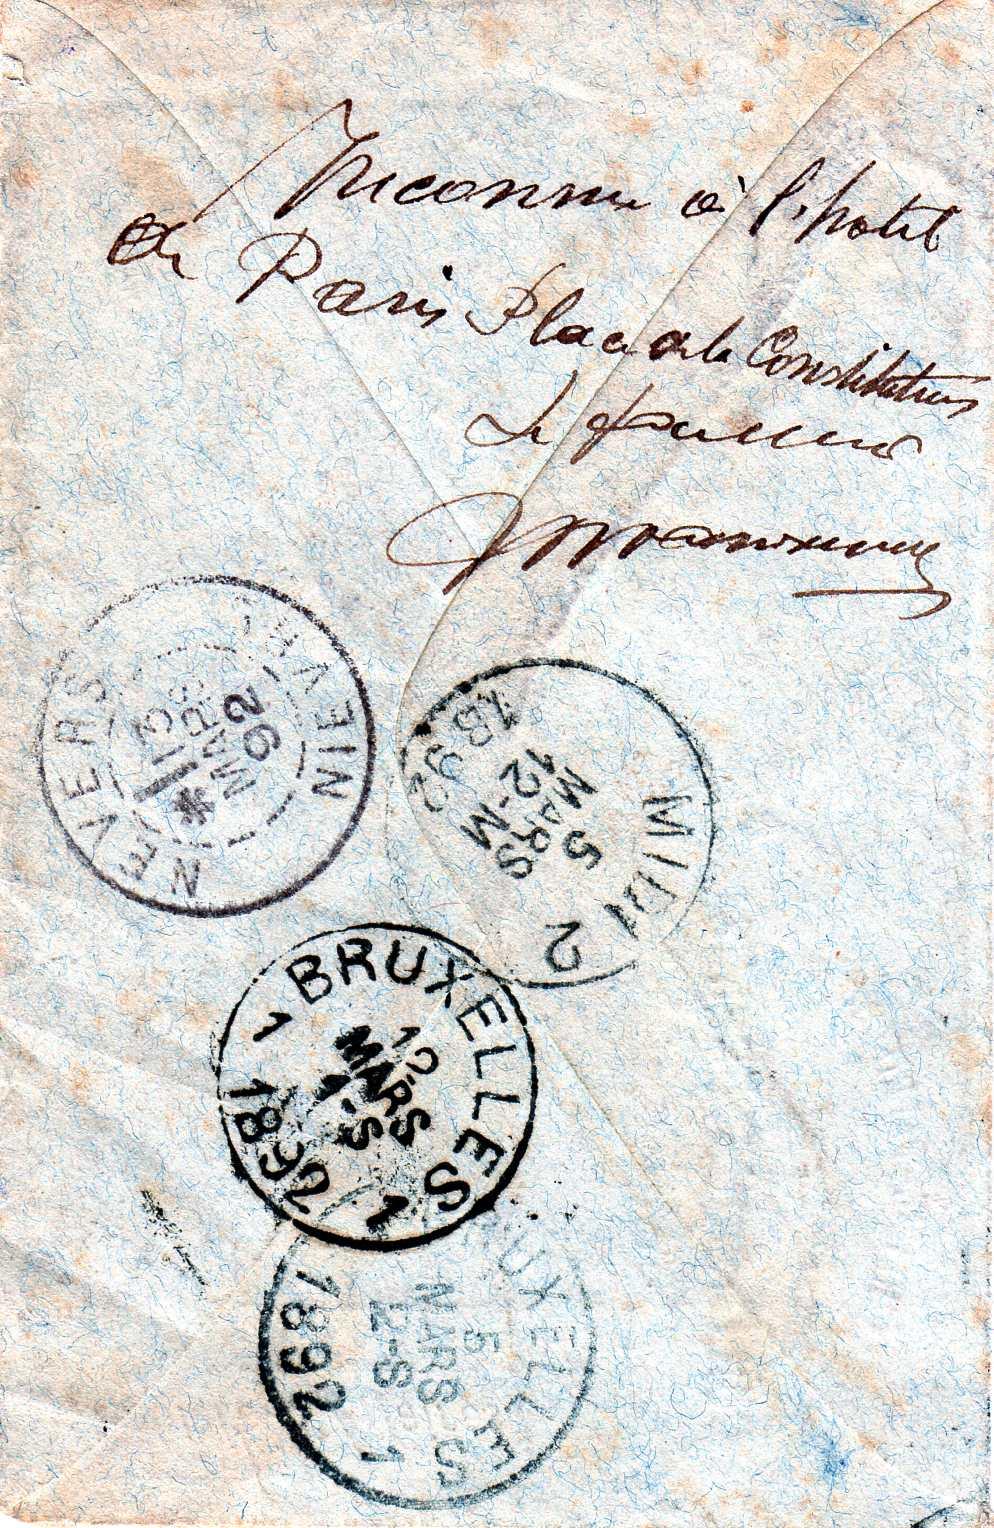 Inconnu à l'hotel
de Paris Place de la Constitution
Le facteur
NEVERS
NIEVRE
13
MARS
92
MIDI 2
5
MARS
12-M
1892
BRUXELLES 1
12
MARS
1-S
1 1892
BRUXELLES
5
MARS
1892 1